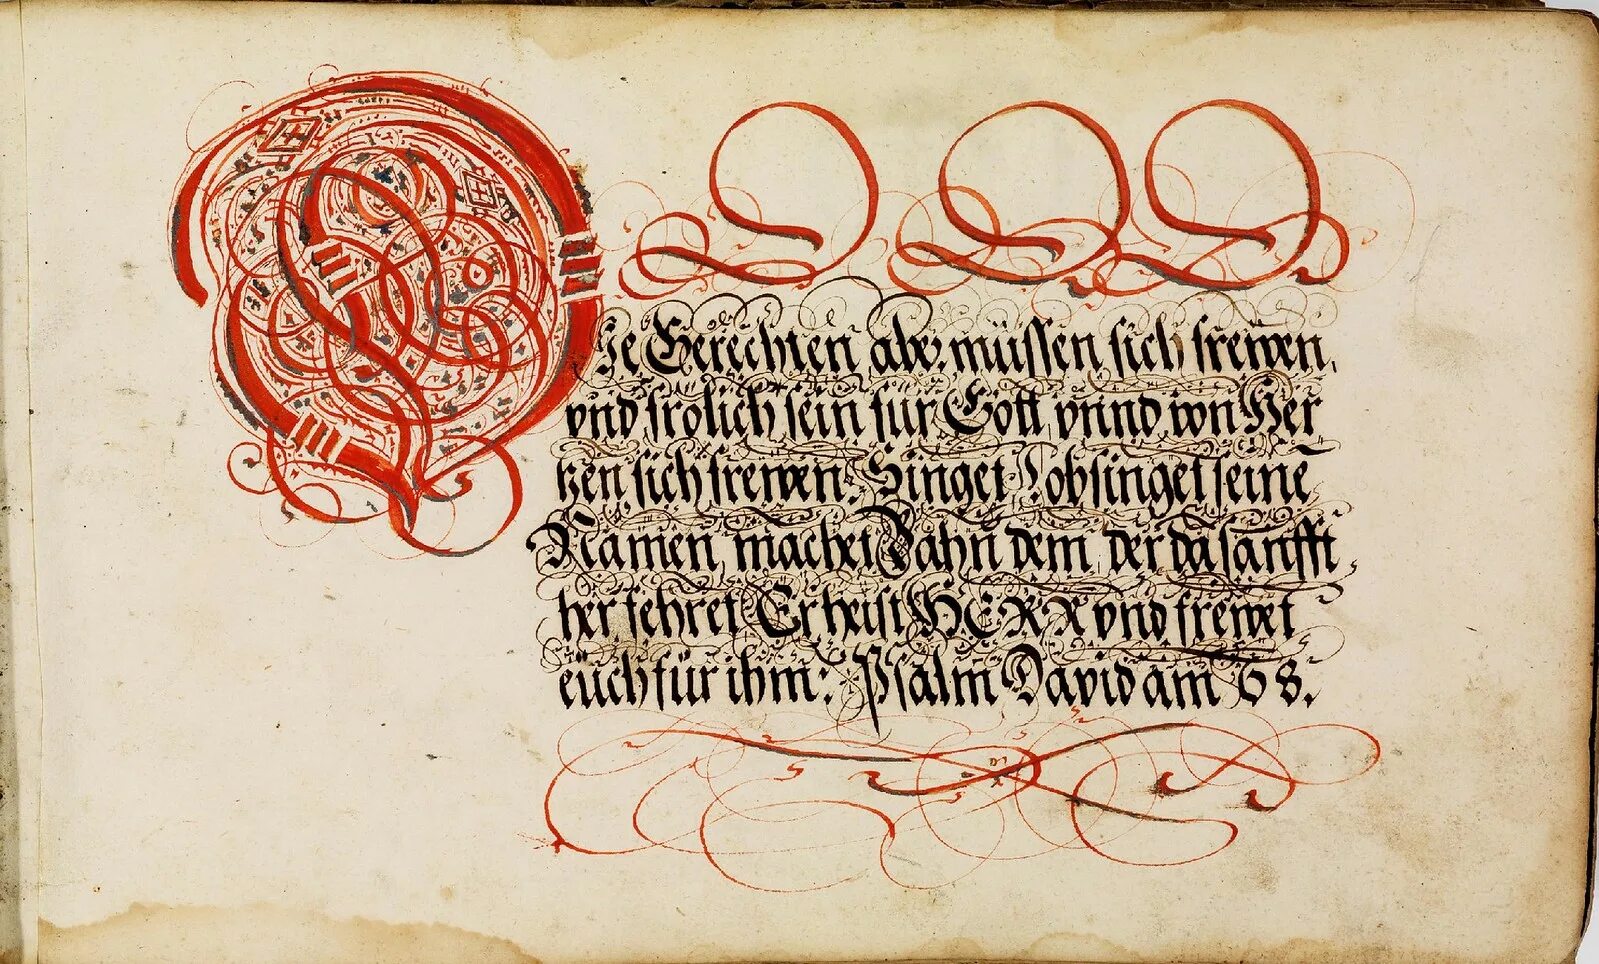 Die Gerechten aber müssen sich frewen,
vnd frölich sein für Gott, vnnd von Her
tzen sich frewen. Singet Lobsinget seinē
Namen, machet Bahn dem, der da sanfft
her fehret, Er heist HERR vnd frewet
euch für ihm: Psalm David am 68.